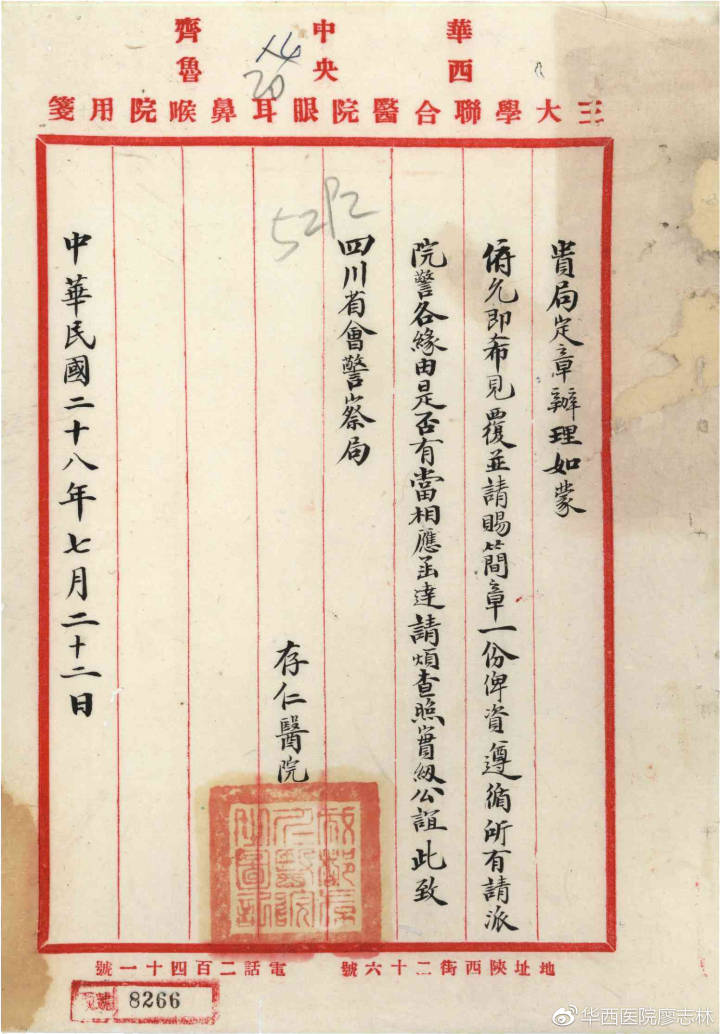 華西
中央
齊魯
三大學聯合醫院眼耳鼻喉院用箋
貴局定章辦理如蒙
俯允即希見覆並請賜簡章一份俾資遵循所有請派
院警各緣由是否有當相應函達請煩查照實紉公誼此致
四川省會警察局
存仁醫院
成都存仁醫院之圖記
中華民國二十八年七月二十二日
地址陝西街二十六號
電話二百四十一號
8266
华西医院廖志林